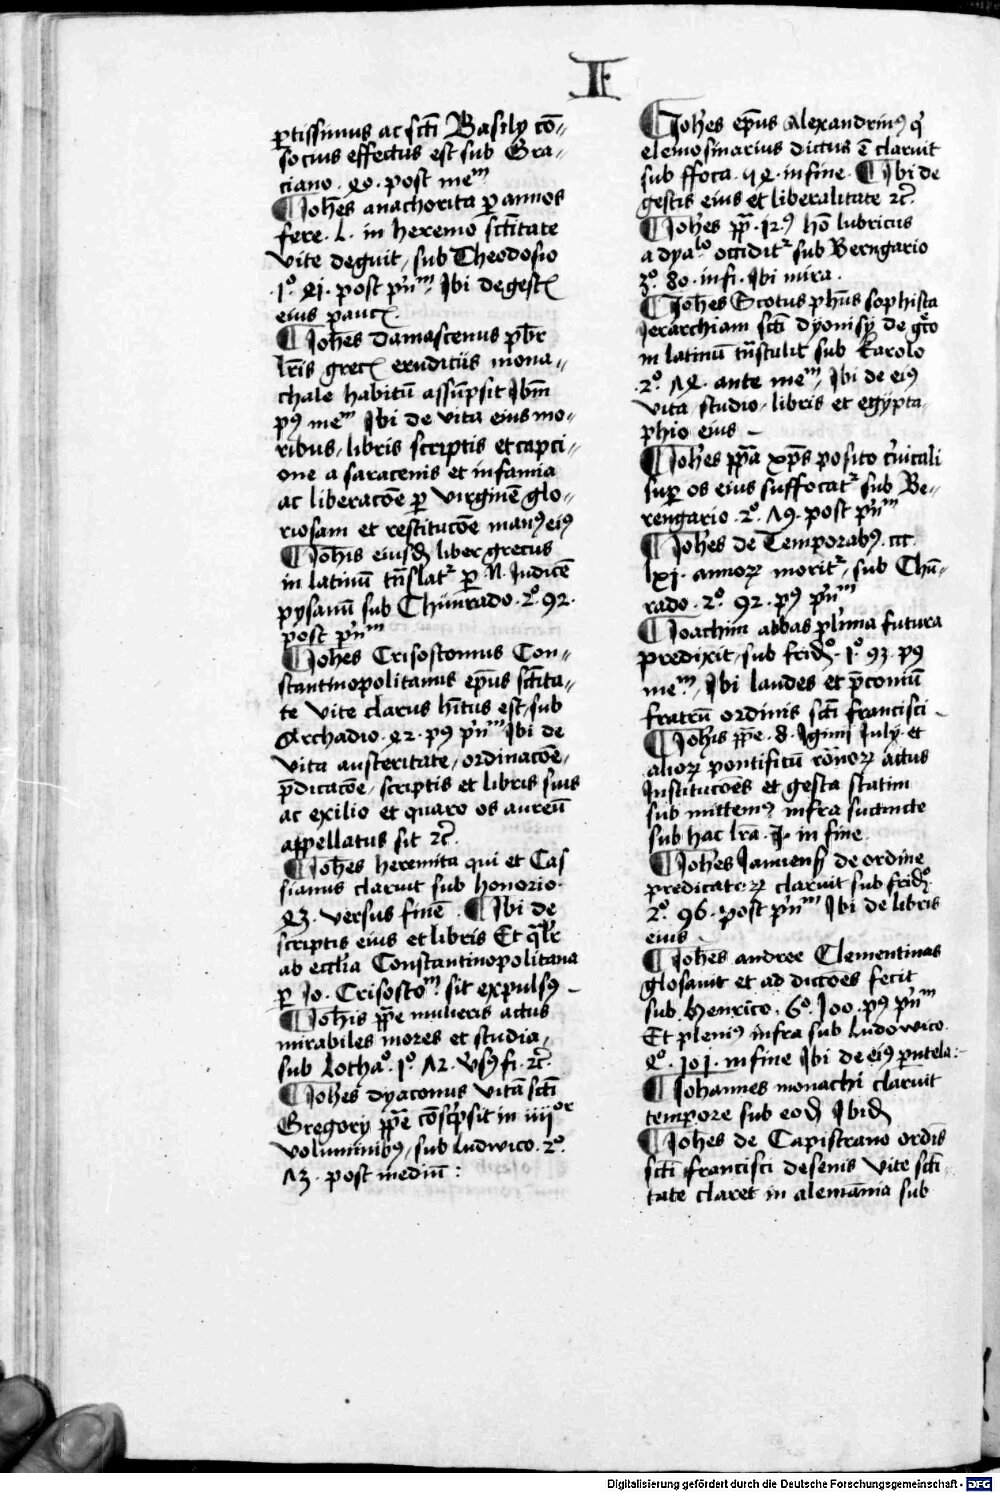 I
ꝑtissimus ac scti Basily cō-
socius effectus est sub Gra-
ciano · 40 · post meᵐ
¶ Joh̄es anachorita ꝑ annos
fere · L · in heremo sctītate
vite deguit, sub Theodosio
·1º· 41 · post pⁱn̄ᵐ, Ibi de gestꝭ
eius paucꝭ ·
¶ Joh̄es Damascenus pbr̄
lr̄is grecꝭ eruditus mona-
chale habitū assūpsit Ibm̄
pꝰ meᵐ Ibi de vita eius mo-
ribus, libris scriptis et capci-
one a saracenis et infamia
ac liberacōe ꝑ virginē glo-
riosam et restitucōe manꝰ eiꝰ
¶ Joh̄is eiusd̄ liber grecus
in latinū tn̄slatʳ ꝑ N. Iudicē
pysanū sub Chunrado · 2º · 92 ·
post pⁱn̄ᵐ
¶ Joh̄es Crisostomus Con-
stantinopolitanus ep̄us sctīta-
te vite clarus hītus est, sub
Archadio · 42 · pꝰ pⁱn̄ᵐ Ibi de
vita austeritate, ordinacōe,
p̄dicacōe, scriptis et libris suis
ac exilio et quare os aureū
appellatus sit ꝛc̄ ·
¶ Joh̄es heremita qui et Cas
sianus claruit sub honorio ·
43 · versus finē · ¶ Ibi de
scriptis eius et libris Et qˡr̄
ab eccl̄ia Constantinopolitana
ꝑ Jo · Crisostoᵐ sit expulsꝰ -
¶ Joh̄is pp̄e mulieris actus
mirabiles mores et studia,
sub Lothaº · 1º · 72 · v̄sꝰ fi · ꝛc̄ ·
¶ Joh̄es dyaconus vitā scti
Gregory pp̄e cōsc̄psit in iiijᵒʳ
voluminibꝰ, sub Ludwico · 2º ·
73 · post mediū :
¶ Joh̄es ep̄us Alexandrinꝰ qⁱ
elemosinarius dictus ē claruit
sub ffoca · 54 · in fine · ¶ Ibi de
gestis eius et liberalitate ꝛc̄ ·
¶ Joh̄es pp̄ · 12ꝰ hō lubricus
a dyaˡº occiditʳ sub Berngario
3º · 80 · in fi · Ibi mira ·
¶ Joh̄es Scotus ph̄us sophista
Jerarchiam scti dyonisy de gr̄co
in latinū tn̄stulit sub Karolo
·2º · 74 · ante meᵐ, Ibi de eiꝰ
vita studio, libris et egypta-
phio eius -
¶ Joh̄es pp̄a xp̄s posito c̄uicali
suꝑ os eius suffocatʳ sub Be-
rengario · 2º · 79 · post pⁱn̄ᵐ
¶ Joh̄es de Temporabꝰ · ccc ·
lxj · annoꝝ moritʳ, sub Chū-
rado · 2º · 92 · pꝰ pⁱn̄ᵐ
¶ Joachim abbas pl̄ima futura
predixit, sub frid̄º · 1º · 93 · pꝰ
meᵐ, Ibi laudes et p̄coniū
fratrū ordinis scti francisci -
¶ Joh̄is pp̄e · d · Igimj July · et
alioꝝ pontificū rōnoꝝ actus
Institucōes et gesta statim
sub mittemꝰ infra succincte
sub hac lr̄a · I · in fine ·
¶ Joh̄es Januensꝭ de ordine
predicatoꝝ claruit sub frid̄º
2º · 96 · post pⁱn̄ᵐ Ibi de libris
eius -
¶ Joh̄es andree Clementinas
glosauit et ad dicōes fecit
sub Henrico · 6º · 100 · pꝰ pⁱn̄ᵐ
Et pleniꝰ infra sub Ludowico ·
4º · 101 · in fine Ibi de eiꝰ p̄ntela :
¶ Johannes monachi claruit
tempore sub eod̄ Ibid̄
¶ Joh̄es de Capistrano ordīs
scti francisci de senis vite sctī-
tate claret in alemānia sub
Digitalisierung gefördert durch die Deutsche Forschungsgemeinschaft - DFG